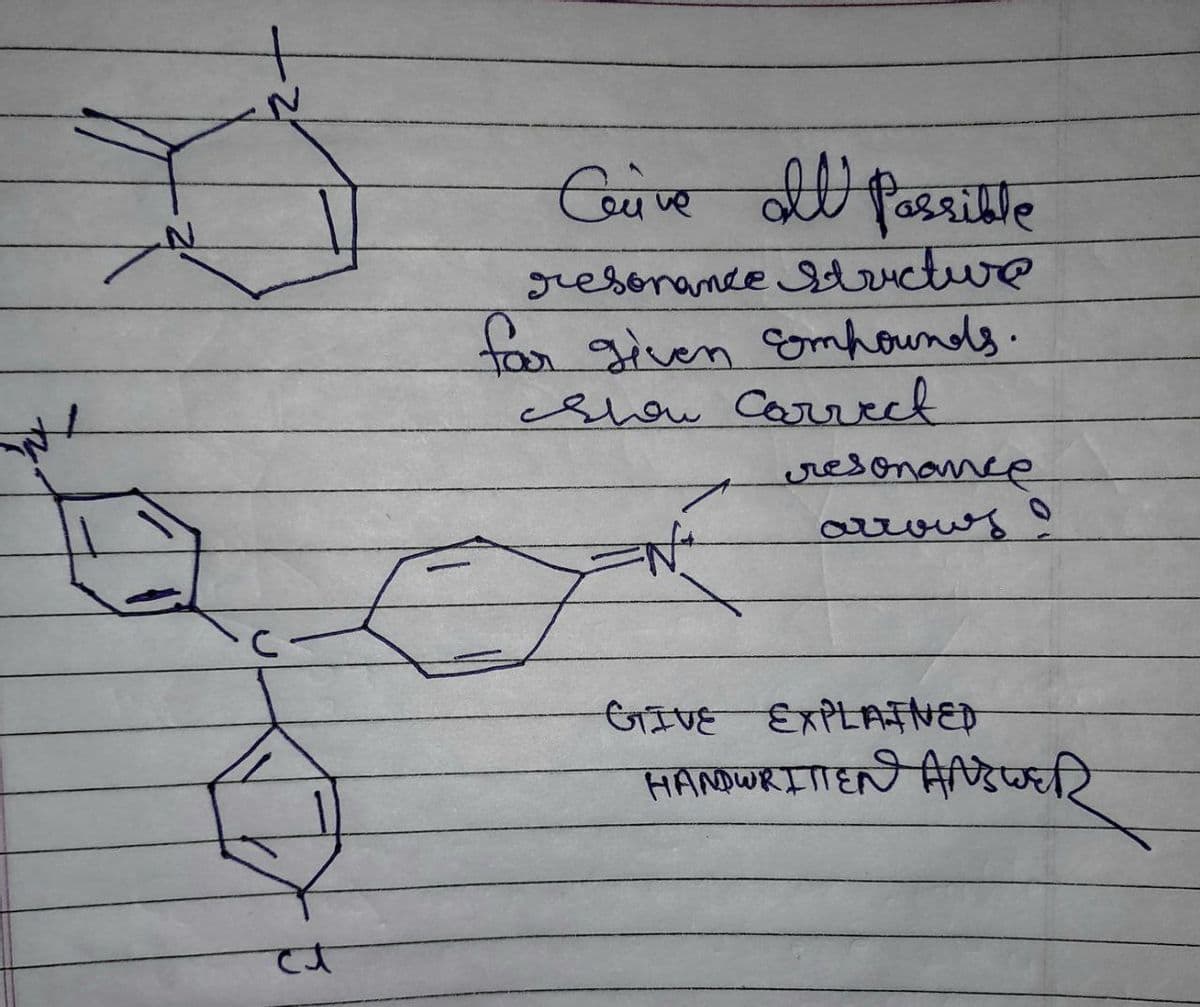 N
N
Give all Possible
resonance structure
for given compounds.
show correct
resonance
arrows ?
N
N+
C
GIVE EXPLAINED
HANDWRITTEN ANSWER
Cl